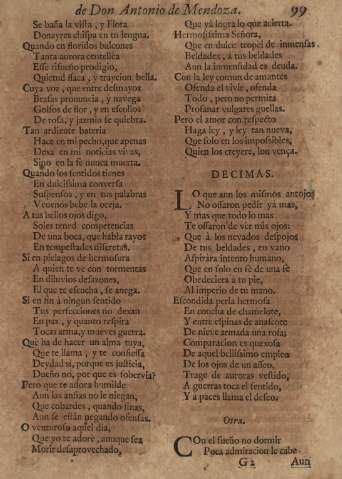 de Don Antonio de Mendoza. 99
Se baña la vista, y Flora
Donayres chispa en tu lengua.
Quando en floridos balcones
Tanta aurora centellea
Esse risueño prodigio,
Quietud flaca, y traycion bella.
Cuya voz, que entre desmayos
Brasas pronuncia, y navega
Golfos de flor, y en escollos
De rosa, y jazmin se quiebra.
Tan ardiente bateria
Hace en mi pecho, que apenas
Dexa en mi noticias vivas,
Sino en la fe nunca muerta.
Quando los sentidos tienes
En dulcissima conversa
Suspensos, y en tus palabras
Venenos bebe la oreja.
A tus bellos ojos digo,
Soles tened competencias
De una boca, que habla rayos
En tempestades discretas.
Si en pielagos de hermosura
A quien te vè con tormentas
En diluvios de sazones,
El que te escucha, se anega.
Si en fin à ningun sentido
Tus perfecciones no dexan
En paz, y quanto respira
Tocas arma, y mueves guerra.
Què ha de hacer un alma tuya,
Que te llama, y te confiessa
Deydad si, porque es justicia,
Dueño no, por que es sobervia?
Pero que te adora humilde
Aun las ansias no le niegan,
Que cobardes, quando finas,
Aun se estàn negando ofensas.
O venturoso aquel dia,
Que yo te adorè, aunque sea
Morir desaprovechado,
Que yà logra lo que acierta.
Hermosissima Señora,
Que en dulce tropel de inmensas
Beldades, à tus beldades
Aun la inmensidad es deuda.
Con la ley comun de amantes
Ofenda el vivir, ofenda
Todo, pero no permita
Profanar vulgares guellas.
Pero el amor con respecto
Haga ley, y ley tan nueva,
Que solo en los impossibles,
Quien los creyere, los vença.
DECIMAS.
LO que aun los mismos antojos
No ossaron pedir ya mas,
Y mas que todo lo mas
Te ossaron de ver mis ojos:
Que à los nevados despojos
De tus beldades, en vano
Aspiràra intento humano,
Que en solo en fè de una fè
Obedeciera à tu pie,
Al imperio de tu mano.
Escondida perla hermosa
En concha de chamelote,
Y entre espinas de anascote
De nieve armada una rosa:
Comparacion es quexosa
De aquel bellissimo empleo
De los ojos de un asseo,
Trage de auroras vestido,
A guerras toca el sentido,
Y à paces llama el deseo.
Otra.
COn el sueño no dormir
Poca admiracion le cabe
G2 Aun